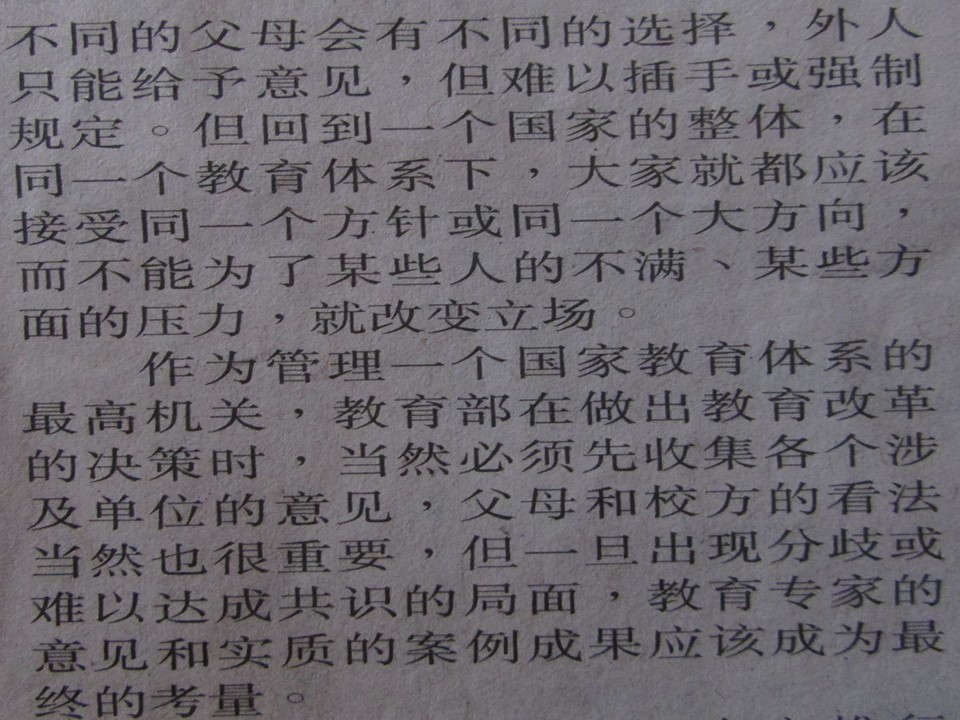 不同的父母会有不同的选择，外人
只能给予意见，但难以插手或强制
规定。但回到一个国家的整体，在
同一个教育体系下，大家就都应该
接受同一个方针或同一个大方向，
而不能为了某些人的不满、某些方
面的压力，就改变立场。
作为管理一个国家教育体系的
最高机关，教育部在做出教育改革
的决策时，当然必须先收集各个涉
及单位的意见，父母和校方的看法
当然也很重要，但一旦出现分歧或
难以达成共识的局面，教育专家的
意见和实质的案例成果应该成为最
终的考量。